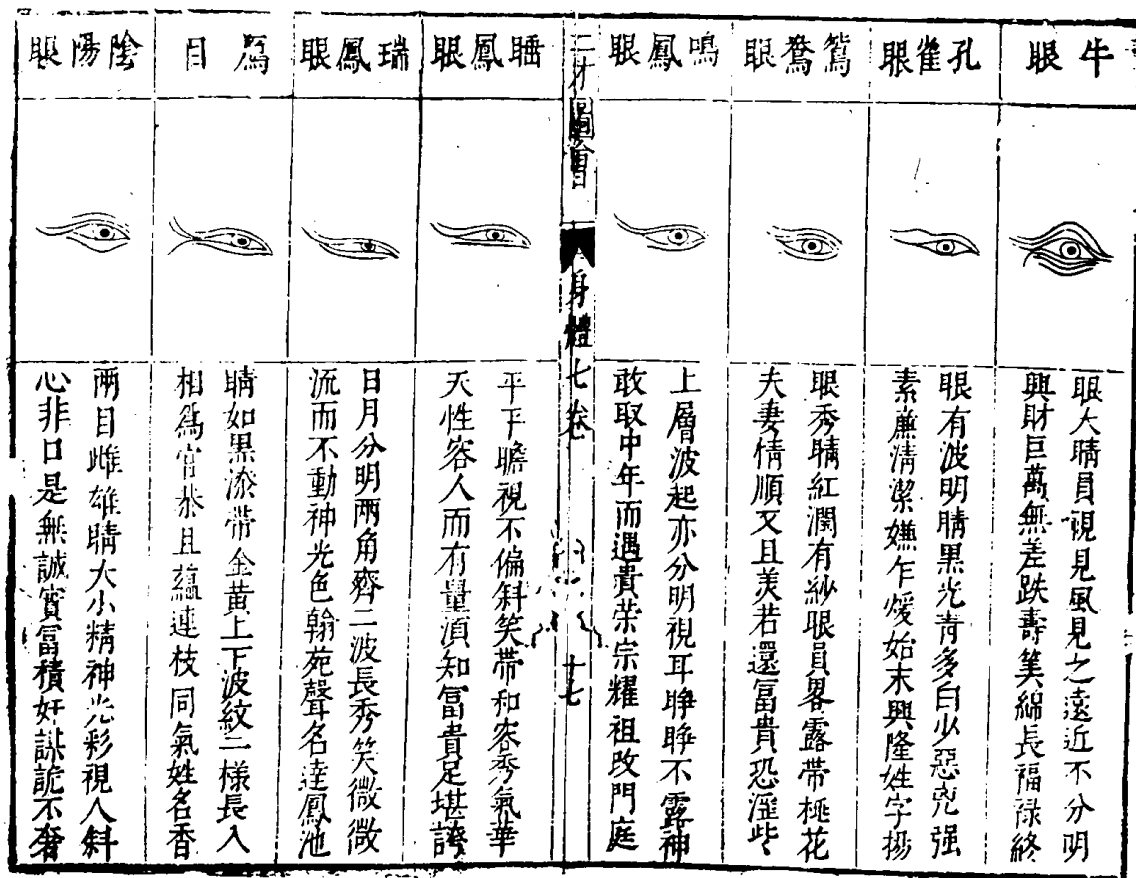 牛眼
眼大睛員視見風見之遠近不分明
興財巨萬無差跌壽筭綿長福祿終
孔雀眼
眼有波明睛黑光青多白少惡兇强
素廉清潔嫌乍煖始末興隆姓字揚
鴛鴦眼
眼秀睛紅潤有紗眼員畧露帶桃花
夫妻情順又且美若還富貴恐淫些
鳴鳳眼
上層波起亦分明視耳睜睜不露神
敢取中年而遇貴荣宗耀祖改門庭
三才圖會
身體七卷
十七
睡鳳眼
平平瞻視不偏斜笑帶和容秀氣華
天性容人而有量湏知富貴足堪誇
瑞鳳眼
日月分明兩角齊二波長秀笑微微
流而不動神光色翰苑聲名達鳳池
鴈目
睛如黑漆帶金黃上下波紋一樣長入
相爲官恭且蘊連枝同氣姓名香
陰陽眼
兩目雌雄睛大小精神光彩視人斜
心非口是無誠實富積奸謀詭不奢